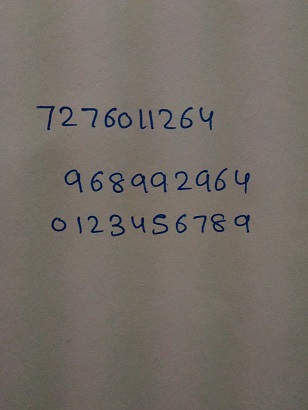 7276011264
968992964
0123456789